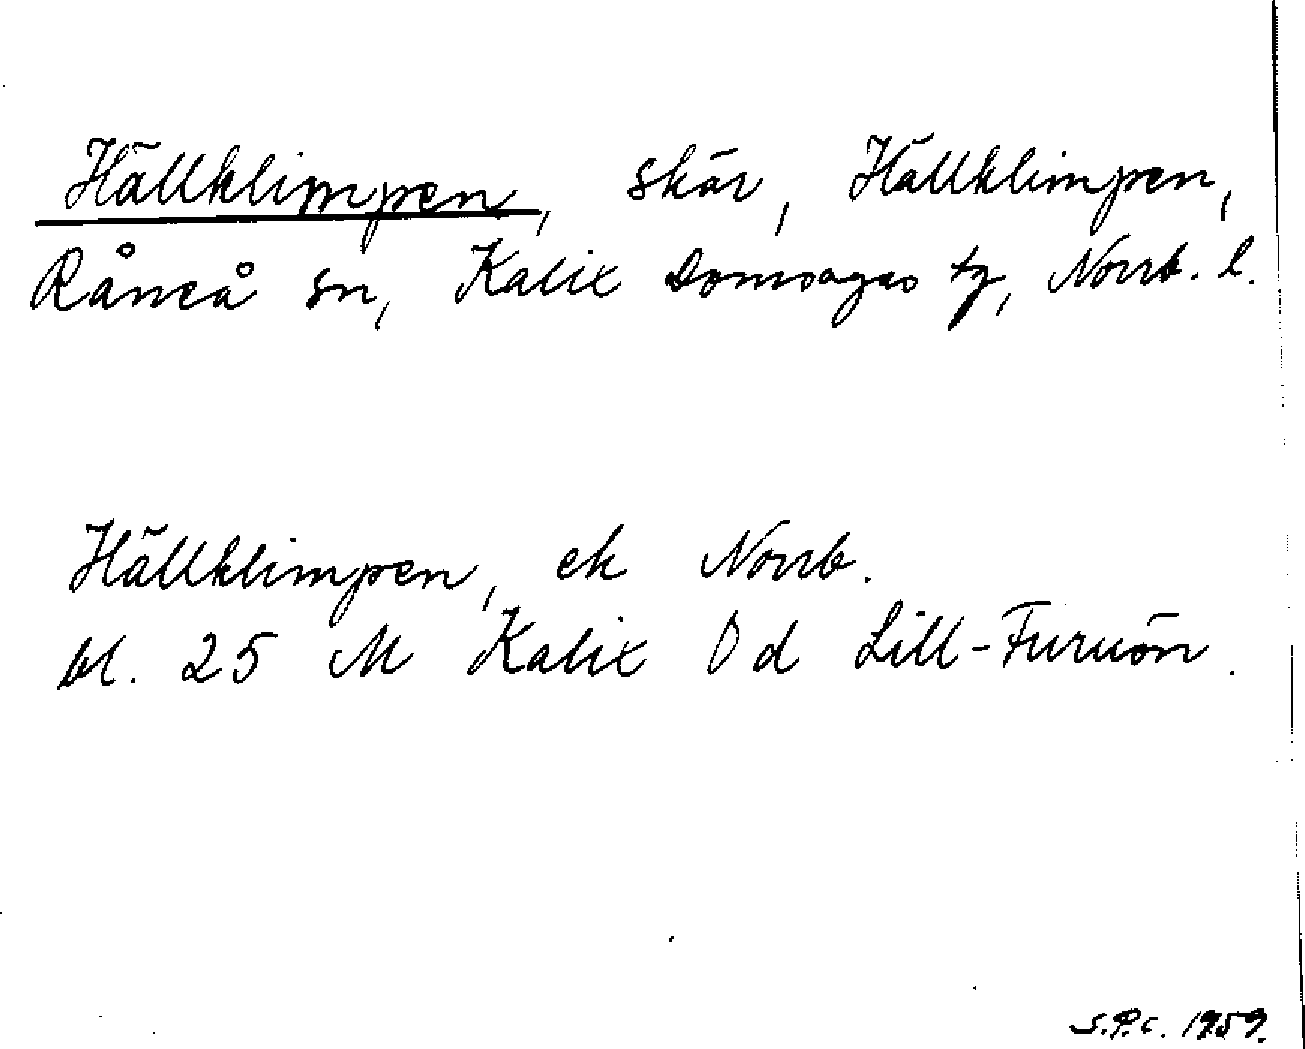 Hällklimpen, skär, Hällklimpen,
Råneå sn, Kalix Domsagas tg, Norrb. l.
Hällklimpen, ek Norrb.
bl. 25 M Kalix Od Lill-Furuön.
S.P.C. 1959.